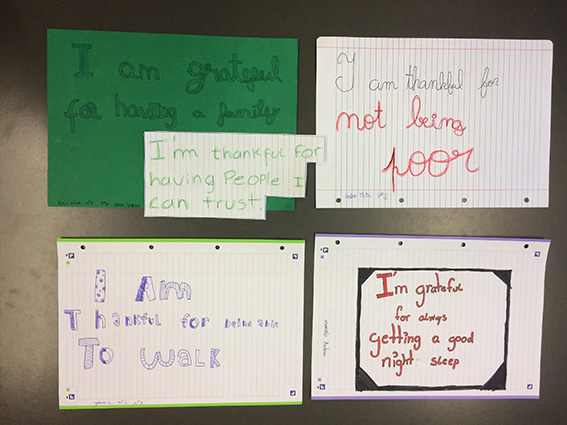 I am grateful
for having a family
I am thankful for
not being
poor
I'm thankful for
having People I
can trust
I Am
Thankful for being able
To walk
I'm grateful
for always
getting a good
night sleep